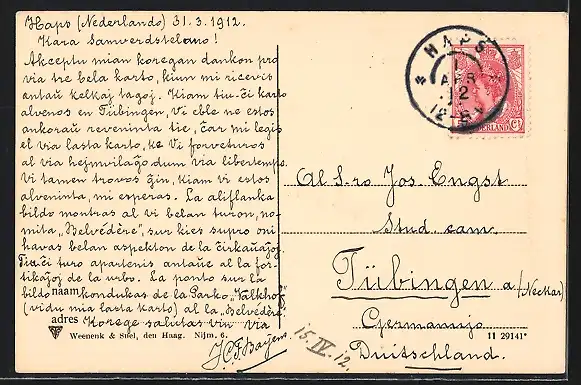 Haps (Nederlando) 31.3.1912.
Kara Samverdstelano!
Akceptu mian koregan dankon pro
via tre bela karto, kiun mi ricevis
antaŭ kelkaj tagoj. Kiam tiu-ĉi karto
alvenos en Tübingen, Vi eble ne estos
ankoraŭ reveninta tie, ĉar mi legis
el via lasta karto, ke Vi forveturos
al via hejmvilaĝo dum via libertempo.
Vi tamen trovos ĝin, kiam Vi estos
alveninta, mi esperas. La aliflanka
bildo montras al Vi belan turon, no-
mita „Belvédère", sur kies supro oni
havas belan aspekton de la ĉirkaŭaĵoj.
Tiu-ĉi turo apartenis antaŭe al la for-
tikaĵoj de la urbo. La ponto sur la
bildo kondukas de la Parko „Valkhof"
naam
(vidu mia lasta karto) al la „Belvédère".
adres
Korege salutas vin via
J.C.F. Bayens
Weenenk & Snel, den Haag. Nijm. 6.
HAPS
1 APR 12
12-8V
NEDERLAND
Al S-ro Jos. Engst
Stud. cam.
Tübingen a/(Neckar)
Germanujo
11 29141*
Duitschland.
15.IV.12.